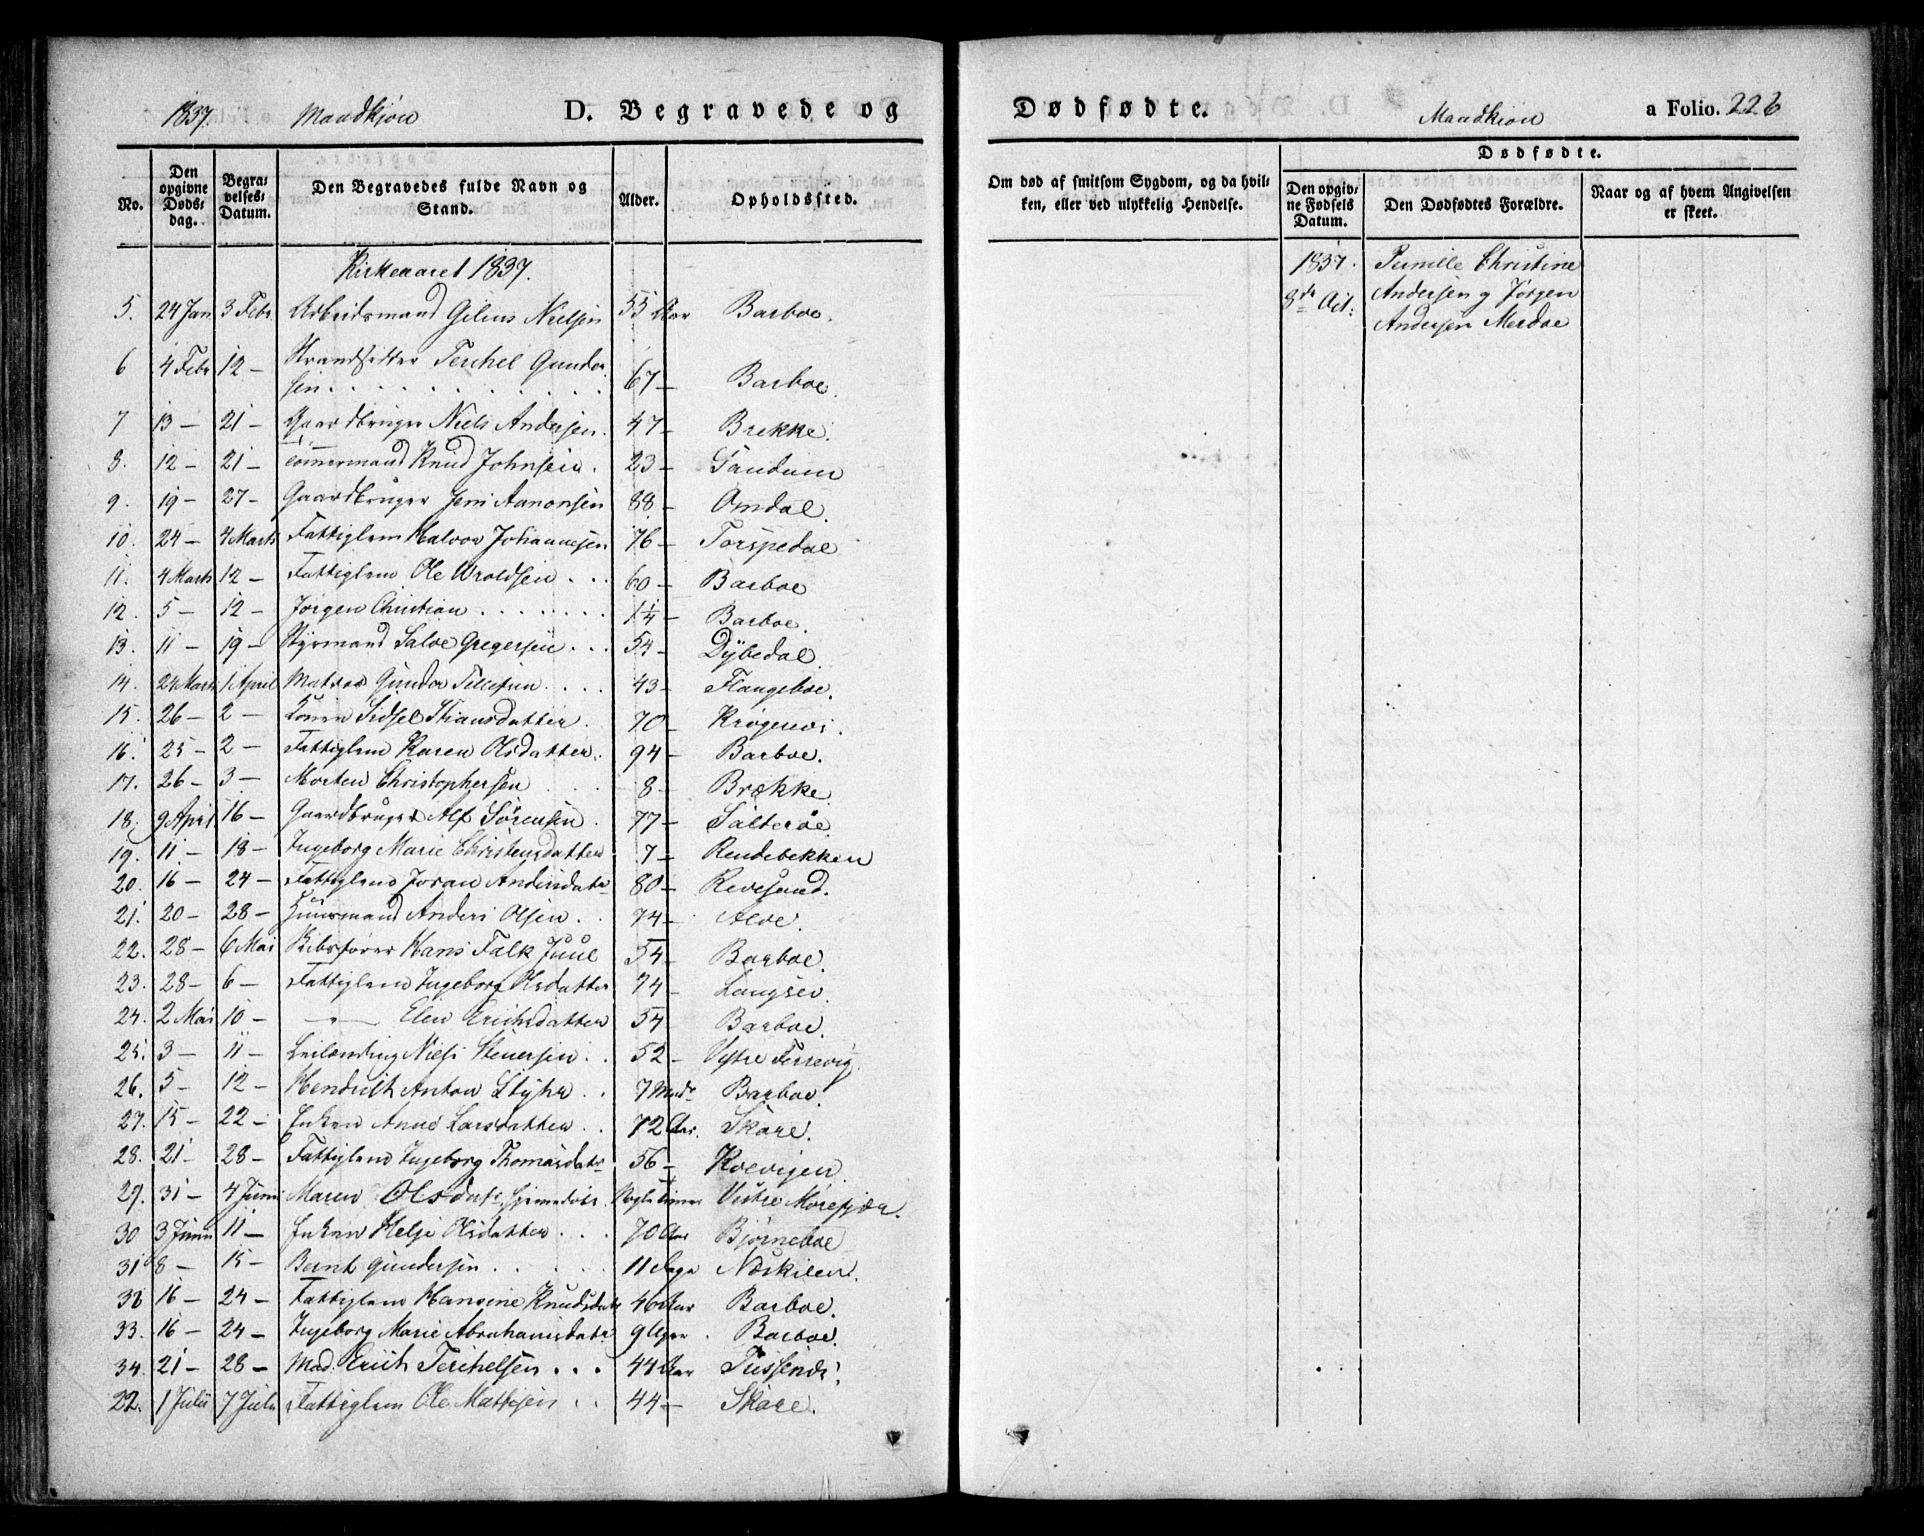 1837. Mandkjøn D. Begravede og
No. Den opgivne Dødsdag. Begravelses-Datum. Den Begravedes fulde Navn og Stand. Alder. Opholdssted.
Kirkeaaret 1837.
5. 24 Jan 3 Febr Arbeidsmand Gelius Nielsen 55 Aar Barboe.
6 4 Febr 12 – Strandsidder Terchel Gunder
sen . . . . . . . 67 – Barboe.
7 13 – 21 – Gaardbruger Niels Andersen. 47 – Brekke.
8. 12 – 21 – Tømmermand Knud Johnsen. 23 –
9. 19 – 27 – Gaardbruger Jens Aanonsen 88 – Omdal.
10. 24 – 4 Marts Fattiglem Halvor Johannesen 76 – Torspedal
11. 4 Marts 12 – Fattiglem Ole Wroldsen . . . 60 – Barboe
12. 5 – 12 – Jørgen Christian . . . . . . . 1¼ – Barboe.
13. 11 – 19 – Styrmand Salve Gregersen . . . 54 – Dybedal.
14. 24 Marts 1 April Matros Gunder Tellefsen . . . . 43 – Flangeboe.
15. 26 – 2 – Konen Sidsel 70 – Krøgenes.
16. 25 – 2 – Fattiglem Karen Olsdatter. 94 – Barboe.
17. 26 – 3 – Morten Christophersen . . . 8 – Brække.
18. 9 April 16 – Gaardbruger Alf Sørensen . 77 – Salterøe.
19. 11 – 18 – Ingeborg Marie Christensdatter 7 – Rendebekken
20. 16 – 24 – Fattiglem Joran Andersdatr 80 – Revesand.
21. 20 – 28 – Huusmand Anders Olsen . . 74 – Alve.
22. 28 – 6 Mai Skibsfører Hans Falk Juul 54 – Barboe.
23. 28 – 6 – Fattiglem Ingeborg Olsdatter 74 – Langsev.
24. 2 Mai 10 – – " – Elen Erichsdatter 54 – Barboe.
25. 3 – 11 – Leilænding Niels Stenersen . . 52 – Vestre Terrevig.
26. 5 – 12 – Hendrich Anton . . 7 Mdr Barboe.
27. 15 – 22 – Enken Anne Larsdatter . . 72 Aar. Skare.
28. 21 – 28 – Fattiglem Ingeborg Thomasdatr 56 – Kvevigen.
29. 31 – 4 Juni Maren Olsdatr. hjemedøbt. Nogle Timer Vestre Morefjær.
30 3 Juni 11 – Enken Helje Olsdatter . . . 70 Aar Bjørneboe
31 8 – 15 – Bernt Gundersen . . . . . 11 Dage Neskilen.
32 16 – 24 – Fattiglem Hansine Knudsdatr 46 Aar Barboe.
33. 16 – 24 – Ingeborg Marie Abrahamsdatr 9 Uger . Barboe.
34. 21 – 28 – Mad. Erich Terchelsen . . . 44 Aar Tussenæs.
22. 1 Julii 7 Juli Fattiglem Ole Mathisen . . 44 – Skare.
Dødfødte. Mandkiøn a Folio. 226
Om død af smitsom Sygdom, og da hvilken, eller ved ulykkelig Hendelse.
Dødfødte.
Den opgivne Fødsels Datum. Den Dødfødtes Forældre. Naar og af hvem Angivelsen er skeet.
1837. Pernille Christine
8de Oct: Andersen og Jørgen
Andersen Merdøe